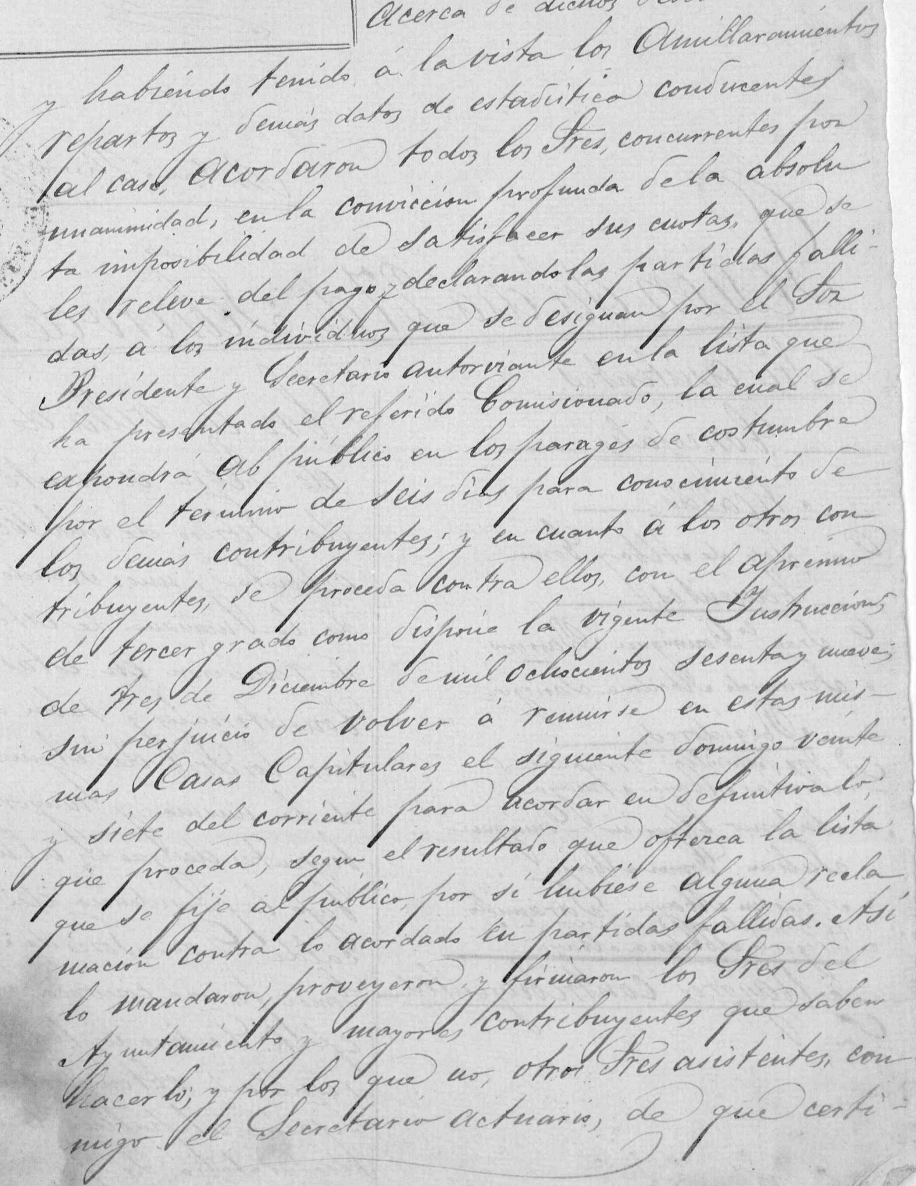 acerca de dichos
y habiendo tenido á la vista los Amillaramientos
repartos y demás datos de estadística conducentes
al caso, Acordaron todos los Sres, concurrentes por
unanimidad, en la convicción profunda de la absolu
ta imposibilidad de satisfacer sus cuotas, que se
les releve del pago y declarando las partidas falli-
das, á los individuos que se designan por el Sor
Presidente y Secretario autorviante en la lista que
ha presentado el referido Comisionado, la cual se
expondrá al público en los parages de costumbre
por el término de seis dias para conocimiento de
los demás contribuyentes; y en cuanto á los otros con
tribuyentes, se proceda contra ellos, con el apremio
de tercer grado como dispone la vigente Instruccion,
de tres de Diciembre de mil ochocientos sesenta y nueve;
sin perjuicio de volver á reunirse en estas mis-
mas Casas Capitulares el siguiente domingo veinte
y siete del corriente para acordar en definitiva lo,
que proceda, segun el resultado que ofrezca la lista
que se fije al público, por si hubiese alguna recla
mación contra lo acordado en partidas fallidas. Así
lo mandaron, proveyeron y firmaron los Sres del
Ayuntamiento y mayores contribuyentes que saben
hacerlo; y por los que no, otros Sres asistentes, con
migo el Secretario actuario, de que certi-